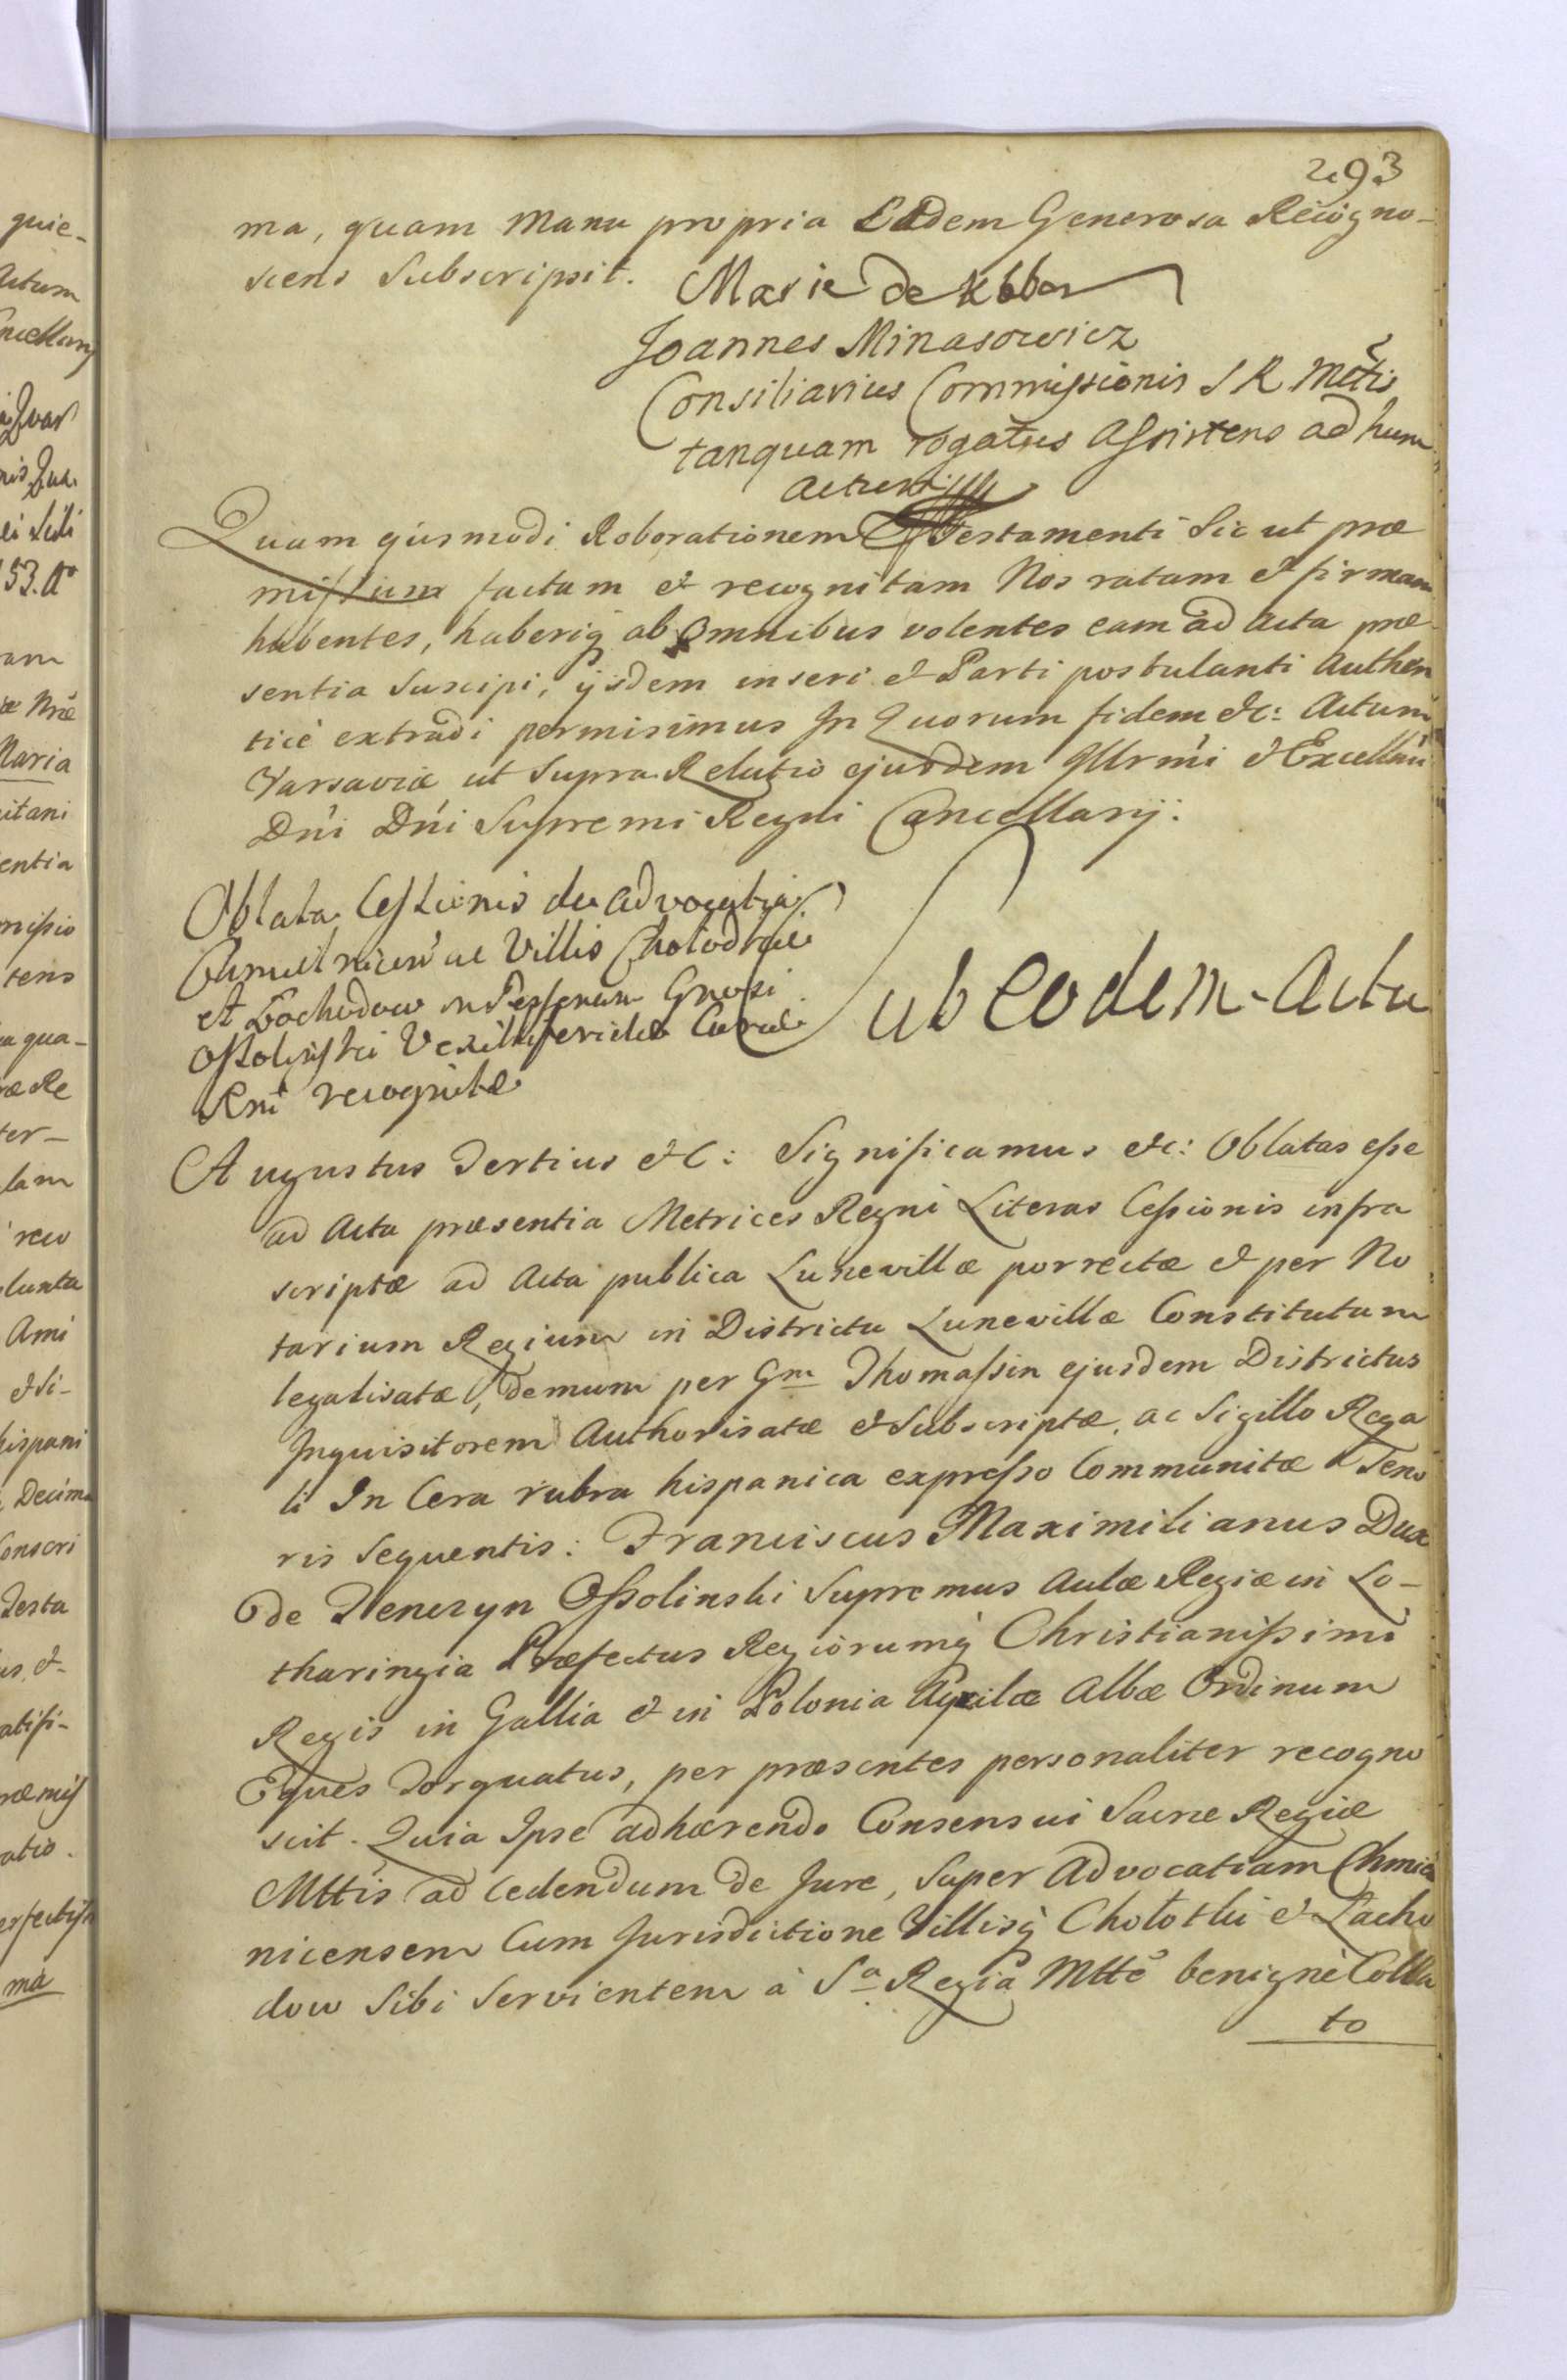 293
ma, quam Manu propria Eadem Generosa Recogno-
scens Subscripsit.
Marie de
Joannes Minasowicz
Consiliarius Commissionis S R Mttis
tanquam rogatus Assistens ad hunc
actum
Quam ejusmodi Roborationem Testamenti Sic ut præ
missum factam et recognitam Nos ratam et firmam
habentes, haberiq ab Omnibus volentes eam ad Acta præ
sentia Suscipi, ijsdem inseri et Parti postulanti Authen
ticè extradi permisimus In Quorum fidem etc: Actum
Varsaviæ ut Supra. Relatio ejusdem Illrmi et Excellmi
Dni Dni Supremi Regni Cancellarij.
Oblata Cessionis de advocatia
ac Villis
et Lachodow in Personam Gnosi
Ossolinski Vexilliferidæ
Rni recognitæ
Sub eodem Actu
Augustus Tertius etc: Significamus etc: Oblatas esse
ad Acta præsentia Metrices Regni Literas Cessionis infra
scriptæ ad Acta publica Lunevillæ porrectæ et per No
tarium Regium in Districtu Lunevillæ Constitutum
legalisatæ, demum per Gm Thomassin ejusdem Districtus
Inquisitorem Authorisatæ et Subscriptæ, ac Sigillo Rega
li In Cera rubra hispanica expresso Communitæ Teno
ris Sequentis: Franciscus Maximilianus Dux
de Tenczyn Ossolinski Supremus Aulæ Regiæ in Lo-
tharingia Præfectus Regiorumq Christianissimi
Regis in Gallia et in Polonia Aquilæ Albæ Ordinum
Eques Torquatus, per præsentes personaliter recogno
scit. Quia Ipse adhærendo Consensui Sacræ Regiæ
Mttis ad Cedendum de Jure, Super Advocatiam Chmiel
nicensem Cum Jurisdictione Villisq Chołotki et Lacho
dow Sibi Servientem à Sa Regia Mtte benignè Colla
to